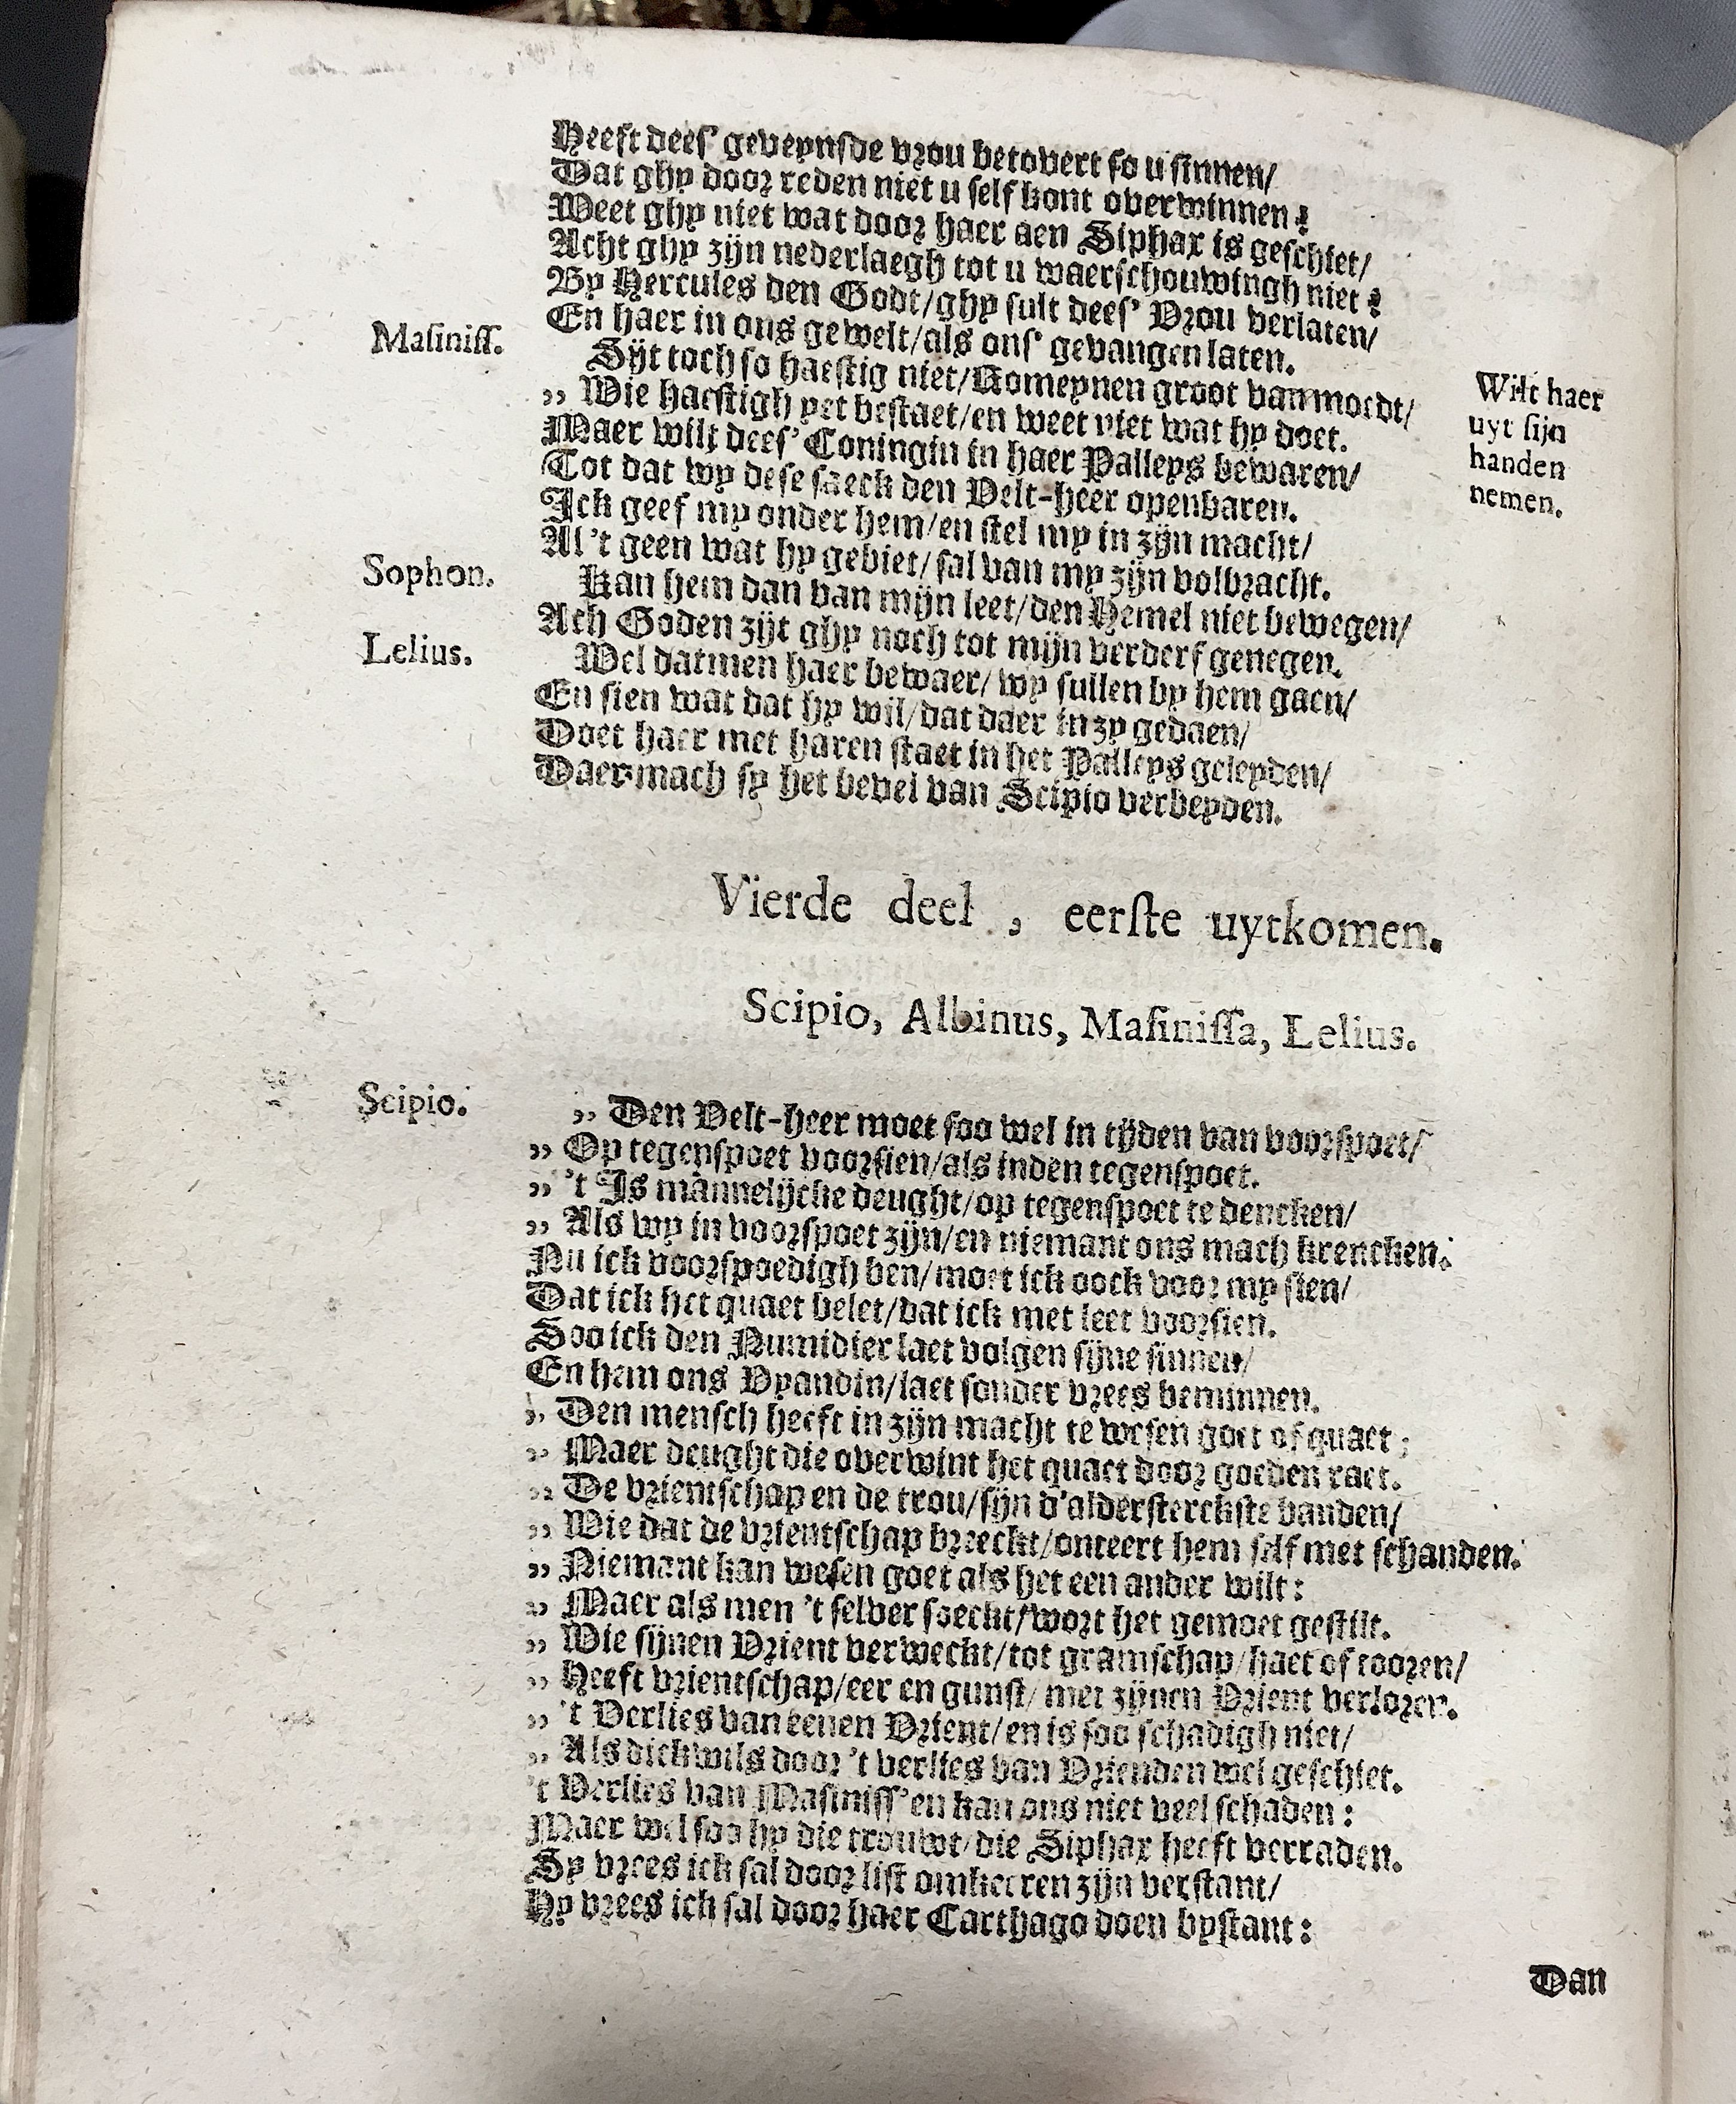 Heeft dees' geveynsde vrou betovert so u sinnen/
Dat ghy door reden niet u self kont overwinnen?
Weet ghy niet wat door haer aen Siphax is geschiet/
Acht ghy zijn nederlaegh tot u waerschouwingh niet?
By Hercules den Godt/ghy sult dees' Vrou verlaten/
En haer in ons gewelt/als ons' gevangen laten.
Masiniss. Sijt toch so haestig niet/Romeynen groot van moedt/
„ Wie haestigh yet bestaet/en weet niet wat hy doet.
Wilt haer
uyt sijn
handen
nemen.
Maer wilt dees' Coningin in haer Palleys bewaren/
Tot dat wy dese saeck den Velt-heer openbaren.
Ick geef my onder hem/en stel my in zijn macht/
Al 't geen wat hy gebiet/sal van my zijn volbracht.
Sophon. Kan hem dan van mijn leet/den Hemel niet bewegen/
Ach Goden zijt ghy noch tot mijn verderf genegen.
Lelius. Wel datmen haer bewaer/wy sullen by hem gaen/
En sien wat dat hy wil/dat daer in zy gedaen/
Doet haer met haren staet in het Palleys geleyden/
Daer mach sy het bevel van Scipio verbeyden.
Vierde deel, eerste uytkomen.
Scipio, Albinus, Masinissa, Lelius.
Scipio. „ Den Velt-heer moet soo wel in tijden van voorspoet/
„ Op tegenspoet voorsien/als inden tegenspoet.
„ 't Is mannelijcke deught/op tegenspoet te dencken/
„ Als wy in voorspoet zijn/en niemant ons mach krencken.
Nu ick voorspoedigh ben/moet ick oock voor my sien/
Dat ick het quaet belet/dat ick met leet voorsien.
Soo ick den Numidier laet volgen sijne sinnen/
En hem ons Vyandin/laet sonder vrees beminnen.
„ Den mensch heeft in zijn macht te wesen goet of quaet;
„ Maer deught die overwint het quaet door goeden raet.
„ De vrientschap en de trou/sijn d'aldersterckste banden/
„ Wie dat de vrientschap breeckt/onteert hem self met schanden.
„ Niemant kan wesen goet als het een ander wilt:
„ Maer als men 't selver soeckt/wort het gemoet gestilt.
„ Wie sijnen Vrient verweckt/tot gramschap/haet of tooren/
„ Heeft vrientschap/eer en gunst/met zijnen Vrient verloren.
„ 't Verlies van eenen Vrient/en is soo schadigh niet/
„ Als dickwils door 't verlies van Vrienden wel geschiet.
't Verlies van Masiniss' en kan ons niet veel schaden:
Maer wel soo hy die trouwt/die Siphax heeft verraden.
Sy vrees ick sal door list omkeeren zijn verstant/
Hy vrees ick sal door haer Carthago doen bystant:
Dan